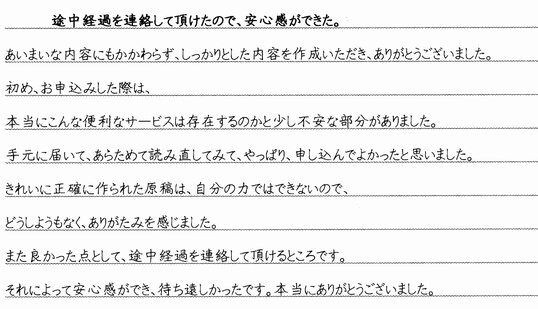 途中経過を連絡して頂けたので、安心感ができた。
あいまいな内容にもかかわらず、しっかりとした内容を作成いただき、ありがとうございました。
初め、お申込みした際は、
本当にこんな便利なサービスは存在するのかと少し不安な部分がありました。
手元に届いて、あらためて読み直してみて、やっぱり、申し込んでよかったと思いました。
きれいに正確に作られた原稿は、自分の力ではできないので、
どうしようもなく、ありがたみを感じました。
また良かった点として、途中経過を連絡して頂けるところです。
それによって安心感ができ、待ち遠しかったです。本当にありがとうございました。